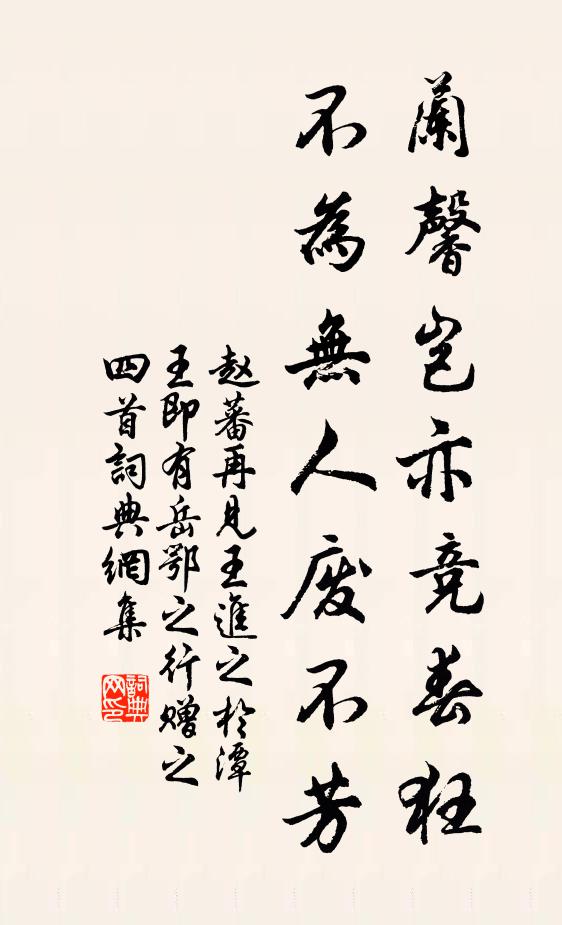 蘭馨豈亦竞春狂
不為無人廢不芳
赵蕃再見王進之於潭
王即有岳鄂之行赠之
四首詞典網集
詞典
网印